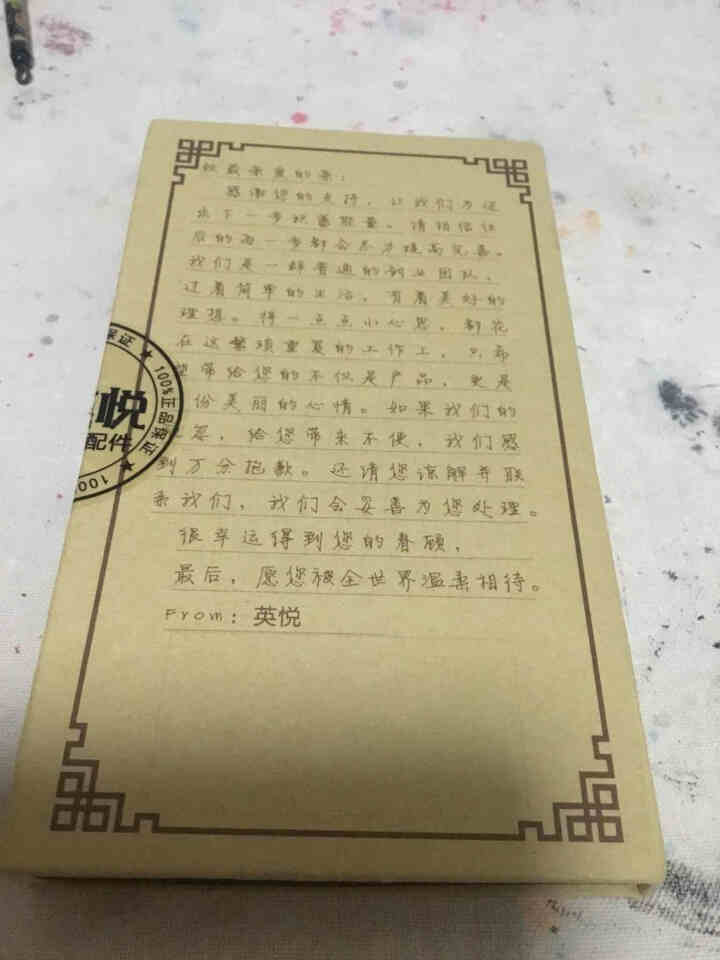 致最亲爱的亲:
感谢您的支持,让我们为这
出下一步积蓄能量。请相信往
后的每一步都会尽力提高完善。
我们是一群普通的创业团队,
过着简单的生活,有着美好的
理想。将一点点小心思,都花
在这繁琐重复的工作上,只希
望带给您的不仅是产品,更是
份美丽的心情。如果我们的
忽,给您带来不便,我们感
到万分抱歉。还请您谅解并联
系我们,我们会妥善为您处理。
很幸运得到您的眷顾,
最后,愿您被全世界温柔相待。
From:英悦
保证
100%正品保证
悦
配件
100